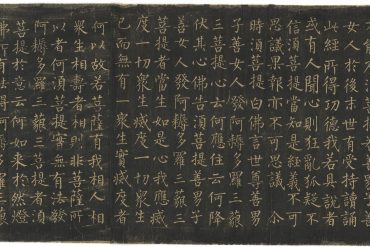 女人於後末世有受持讀誦
此經所得功德我若具說者
或有人聞心則狂亂狐疑不
信須菩提當知是經義不可
思議果報亦不可思議 尒
時須菩提白佛言世尊善男
子善女人發阿耨多羅三藐
三菩提心云何應住云何降
伏其心佛告須菩提善男子
善女人發阿耨多羅三藐三
菩提者當生如是心我應滅
度一切衆生滅度一切衆生
已而無有一衆生實滅度者
何以故若菩薩有我相人相
衆生相壽者相則非菩薩所
以者何須菩提實無有法發
阿耨多羅三藐三菩提者須
菩提於意云何如來於然燈
佛所有法得阿耨多羅三藐